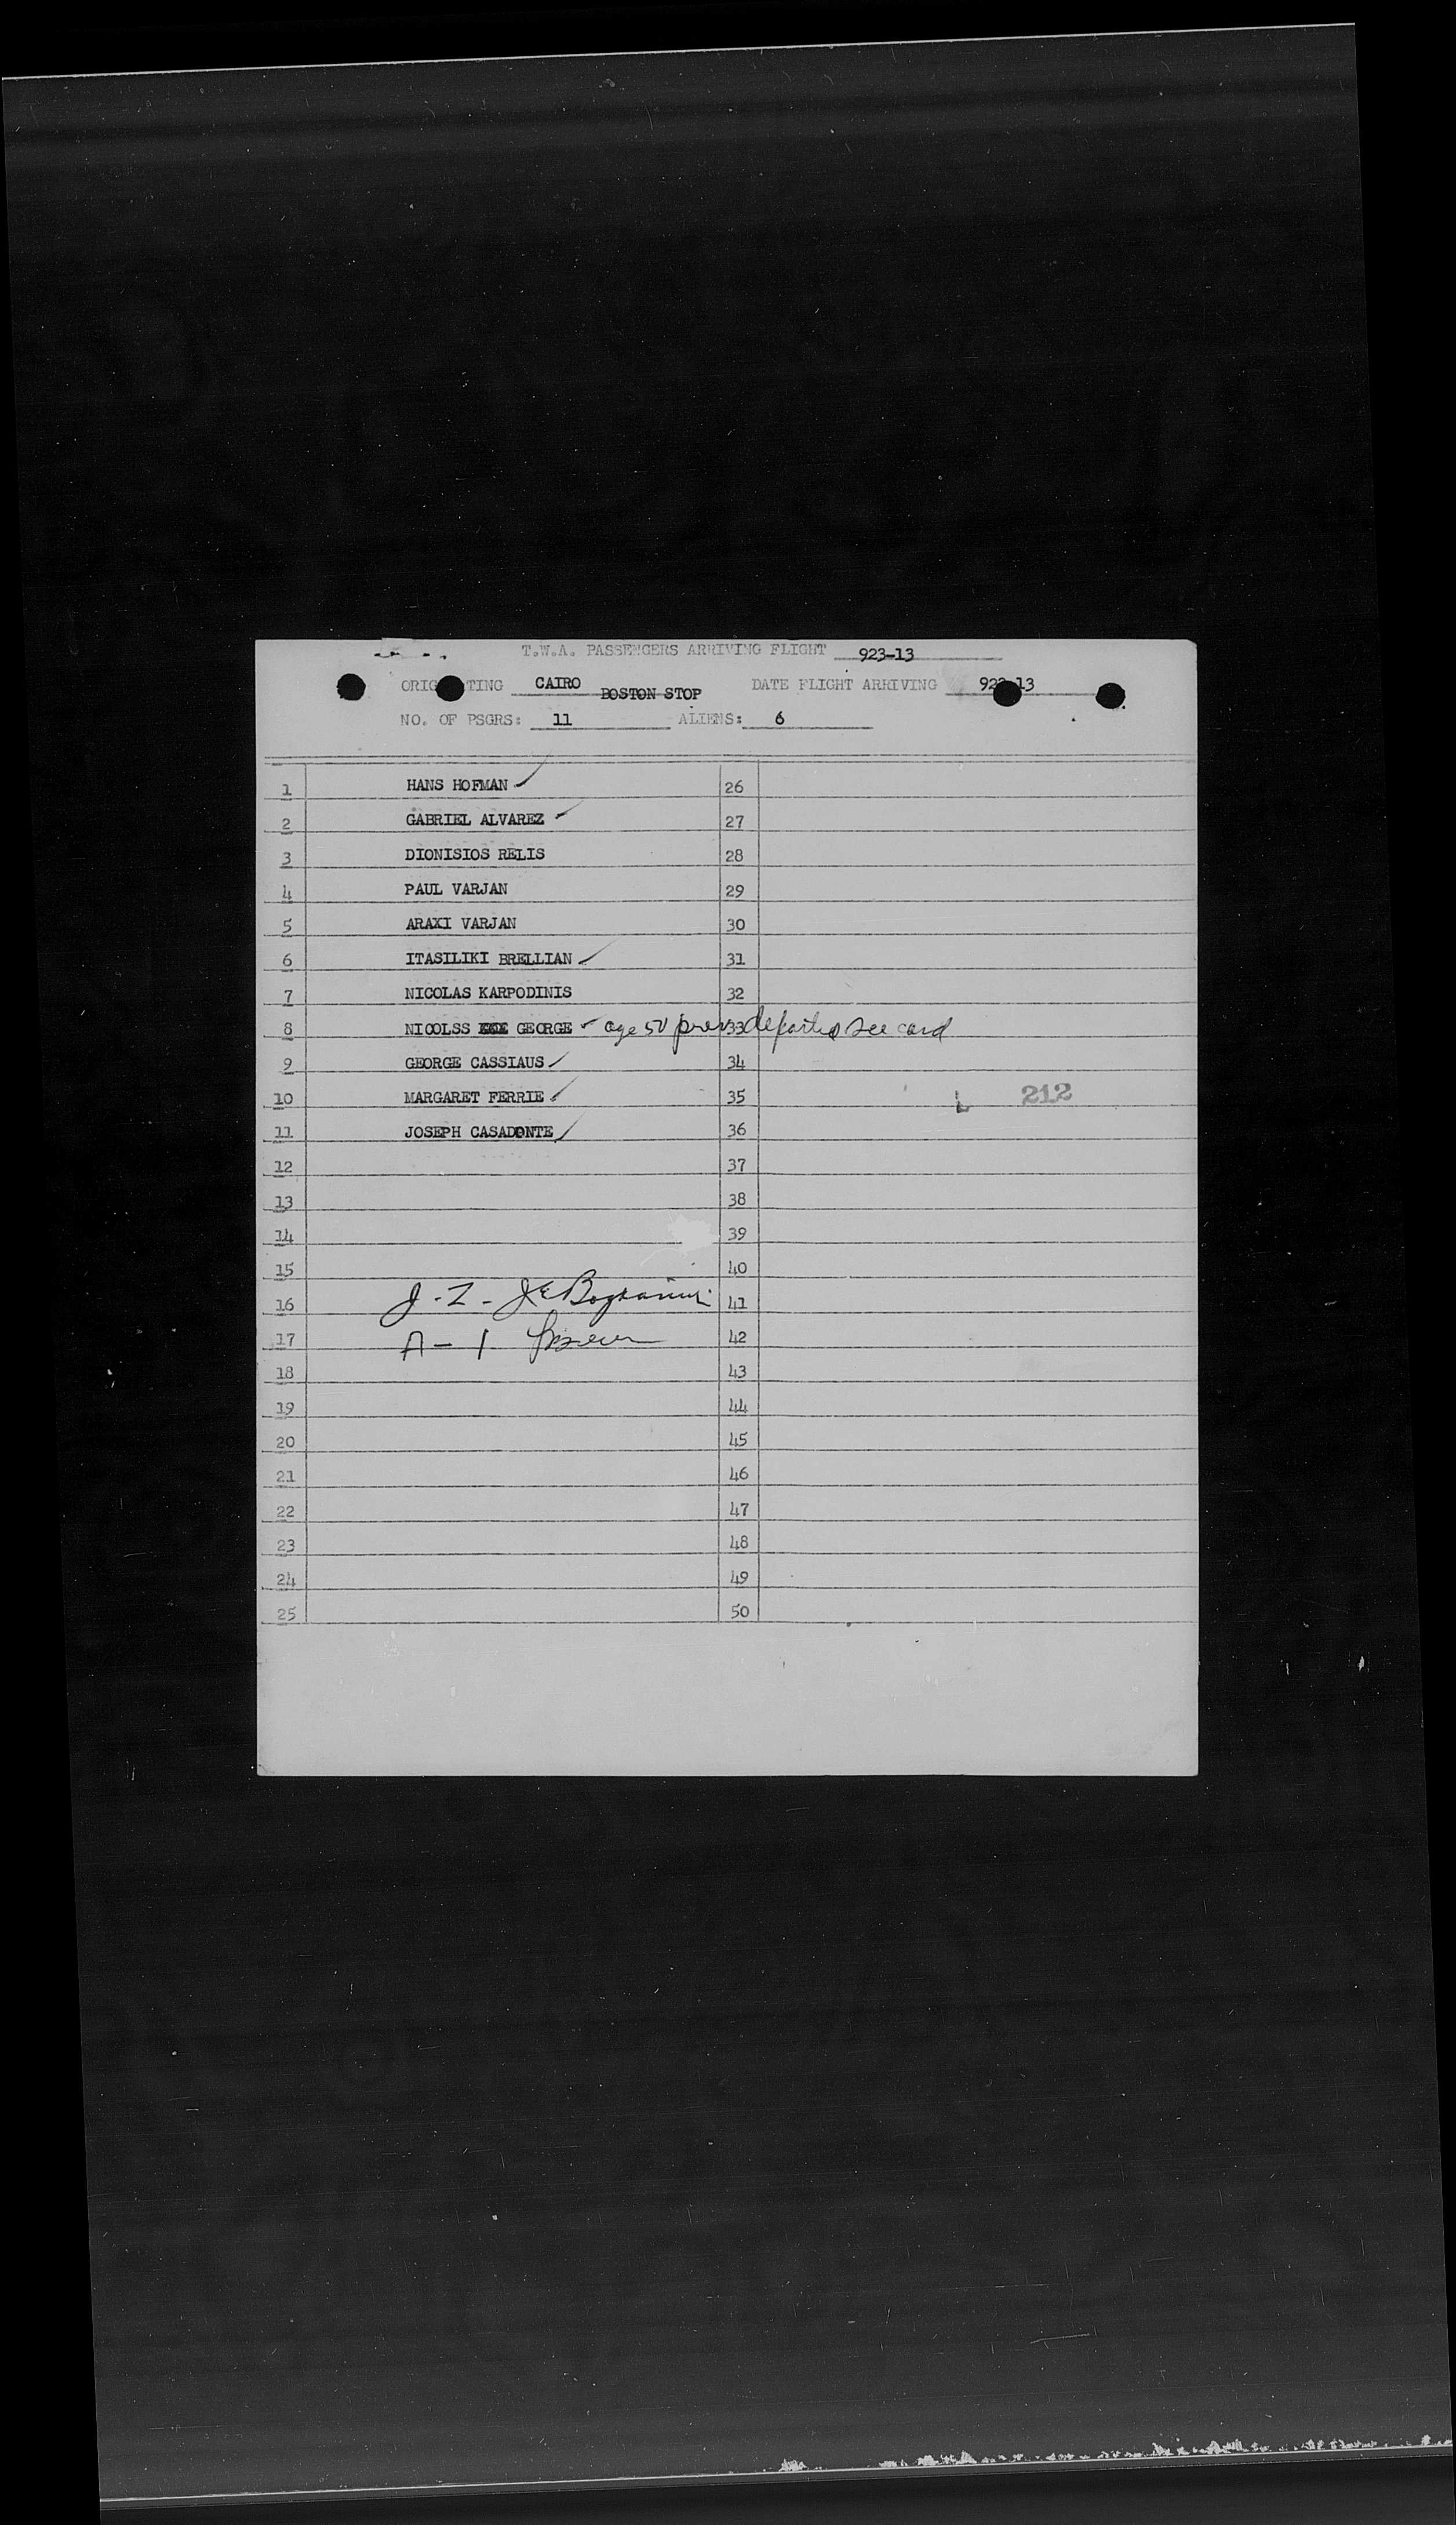 T.W.A. PASSENGERS ARRIVING FLIGHT 923-13
ORIG TING CAIRO BOSTON STOP DATE FLIGHT ARRIVING 923-13
NO. OF PSGRS: 11 ALIENS: 6
1 HANS HOFMAN ✓ 26
2 GABRIEL ALVAREZ ✓ 27
3 DIONISIOS RELIS 28
4 PAUL VARJAN 29
5 ARAXI VARJAN 30
6 ITASILIKI BRELLIAN ✓ 31
7 NICOLAS KARPODINIS 32
8 NICOLSS GEORGE ✓ age 50 prev 33 departed see card
9 GEORGE CASSIAUS ✓ 34
10 MARGARET FERRIE ✓ 35 212
11 JOSEPH CASADONTE ✓ 36
12 37
13 38
14 39
15 40
16 J-2- 41
17 A-1 42
18 43
19 44
20 45
21 46
22 47
23 48
24 49
25 50